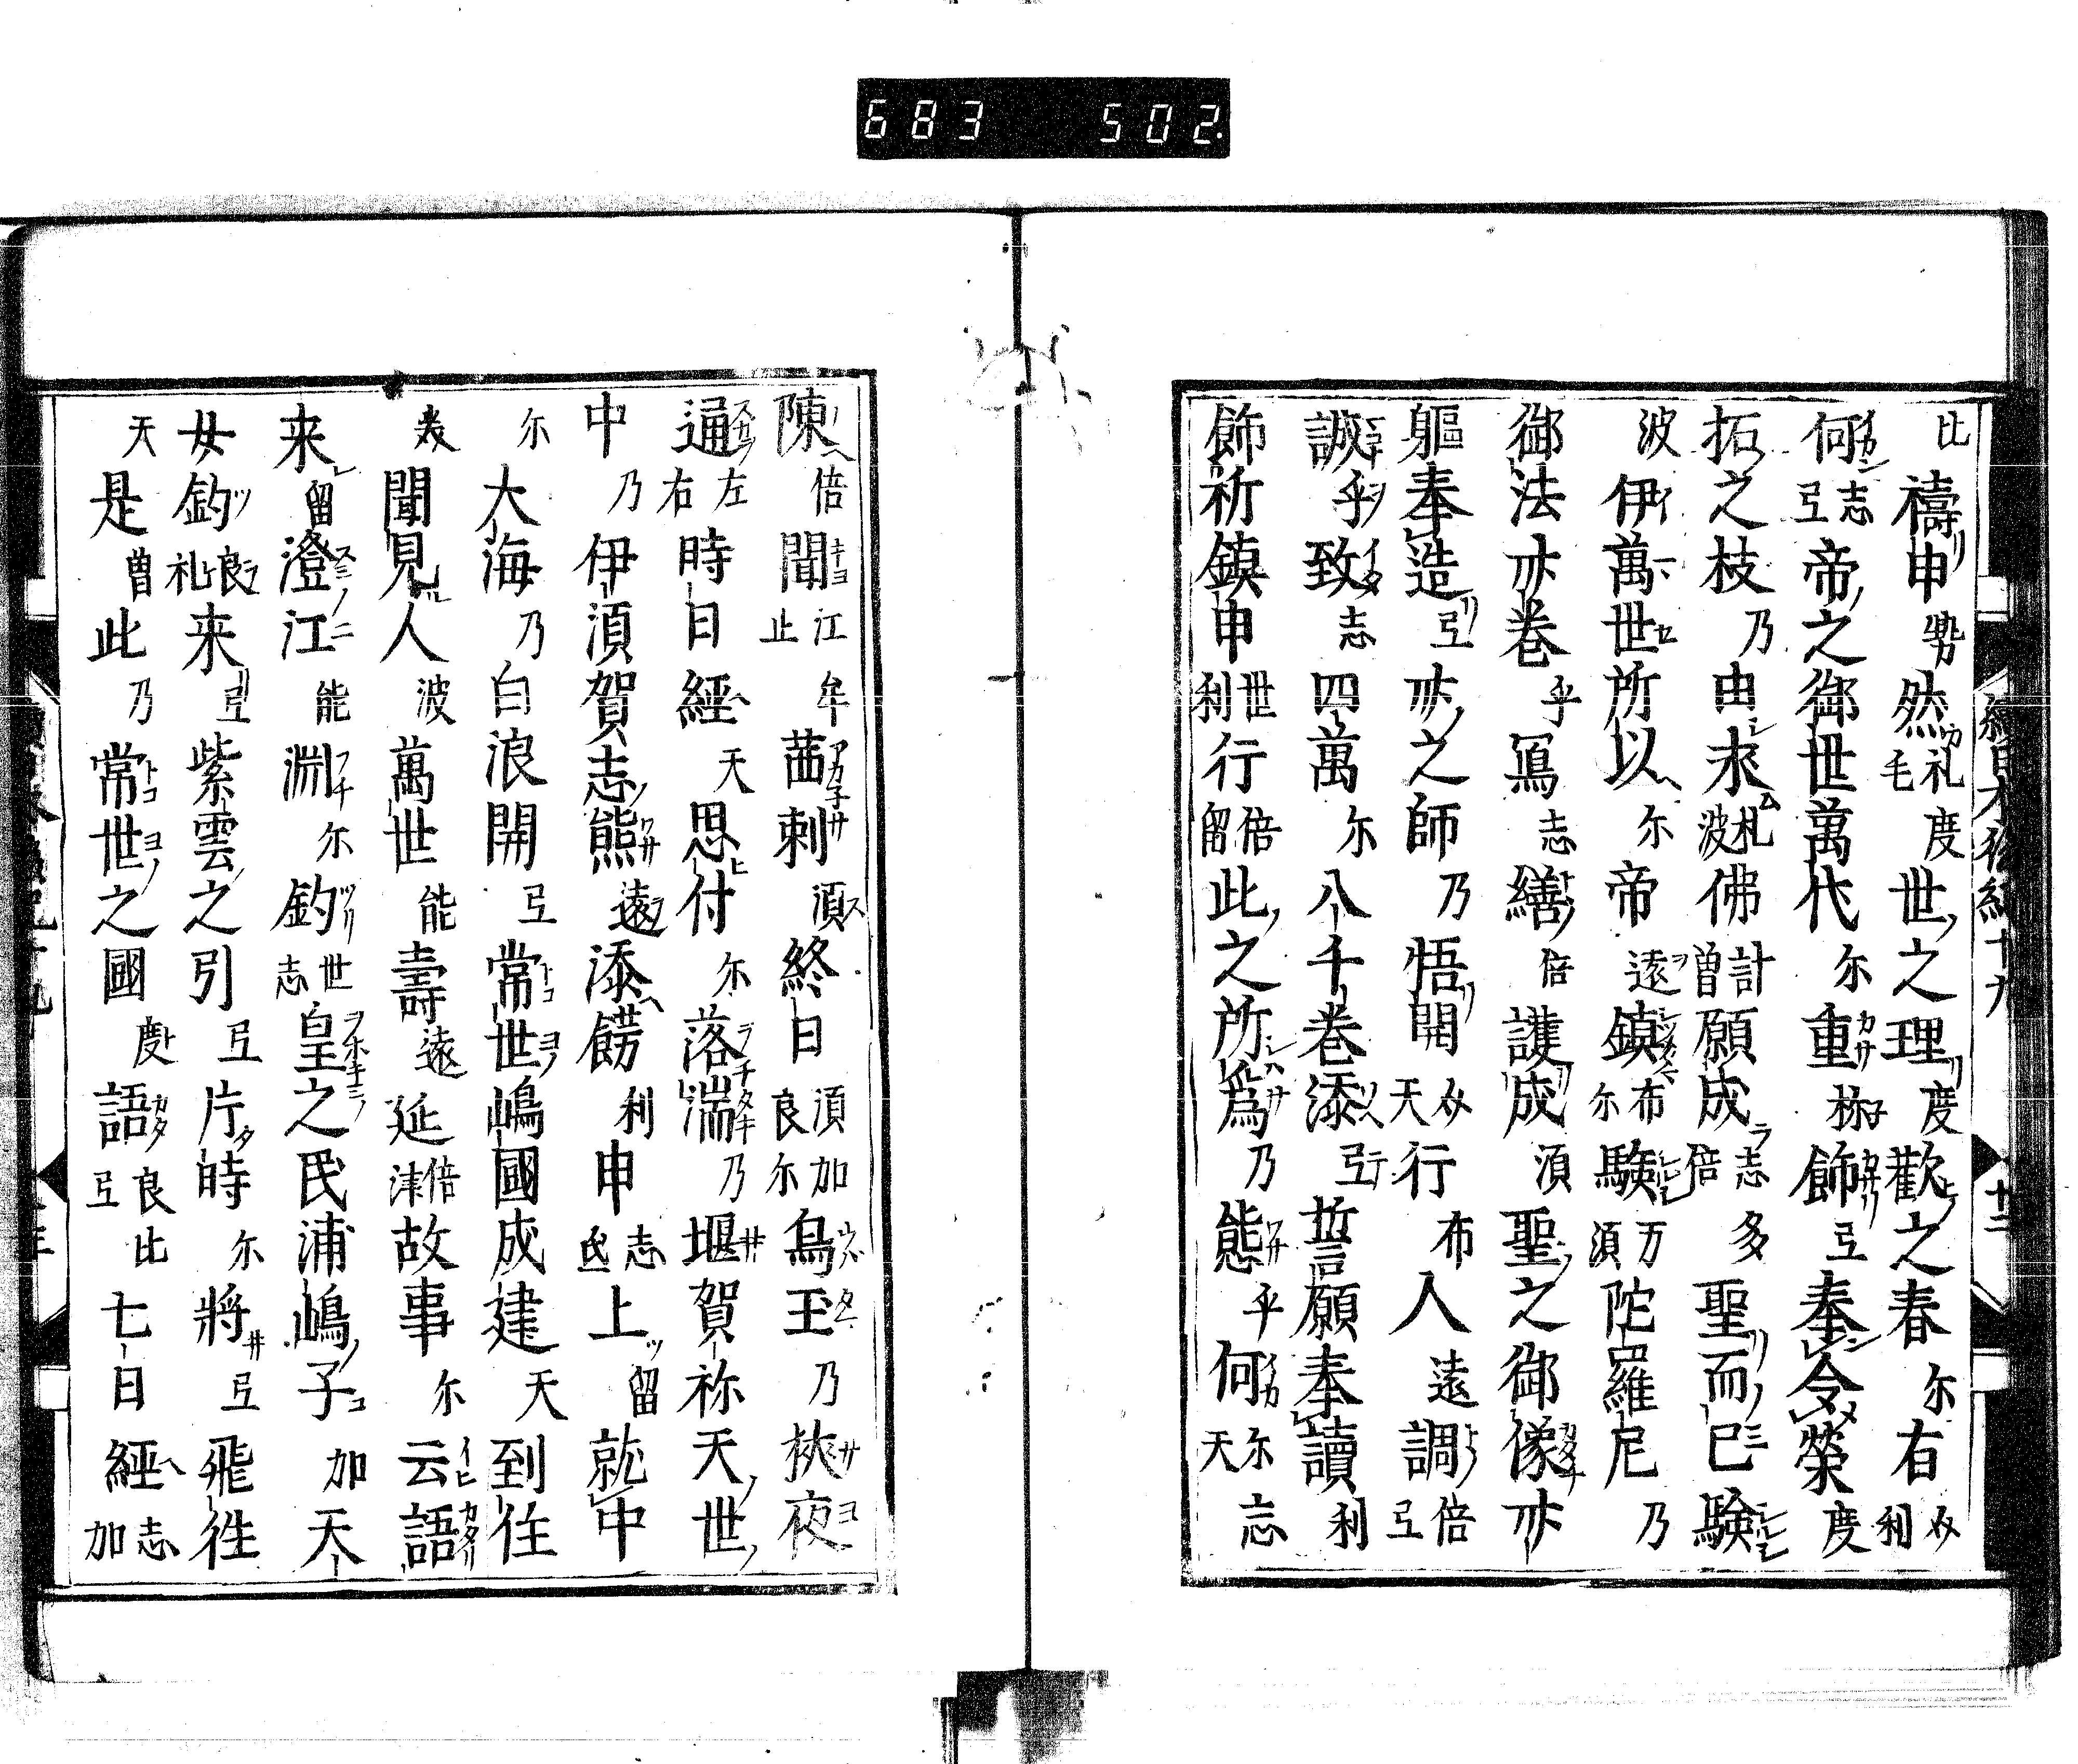 683 502.
比禱申 然礼毛度世之理度歡之春尓右
何志弖帝之御世萬代尓重祢飾弖奉令榮度
拓之枝乃由求礼波佛計曽願成志倍多聖而已験
波伊萬世所以尓帝遠鎮布尓験万須陀羅尼乃
御法亦卷乎寫志繕倍護成須聖之御像亦
軀奉造弖亦之師乃悟開天行布人遠調倍弖
誠乎致志四萬尓八千卷添弖誓願奉讀利
飾祈鎮申世利行倍留此之所為乃態乎何尓天忘
陳倍聞江止牟茜刺須終日須加良尓烏玉乃挾夜
通左右時日經天思付尓落湍乃堰賀祢天世
中乃伊須賀志熊遠添餝利申志上留就中
尓大海乃白浪開弖常世嶋國成建天到住
聞見人波萬世能壽遠延倍津故事尓云語
来留澄江能渊尓釣世志皇之民浦嶋子加天
女釣良礼来弖紫雲之引弖片時尓將弖飛往
天是曽此乃常世之國度語良比弖七日經志加
續日本後紀十九
十二